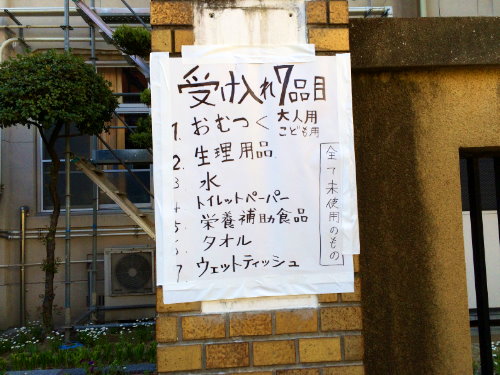 受け入れ7品目
1. おむつ く 大人用
こども用
2. 生理用品
3 水
4. トイレットペーパー
5. 栄養補助食品
6 タオル
7 ウェットティッシュ
全て未使用のもの